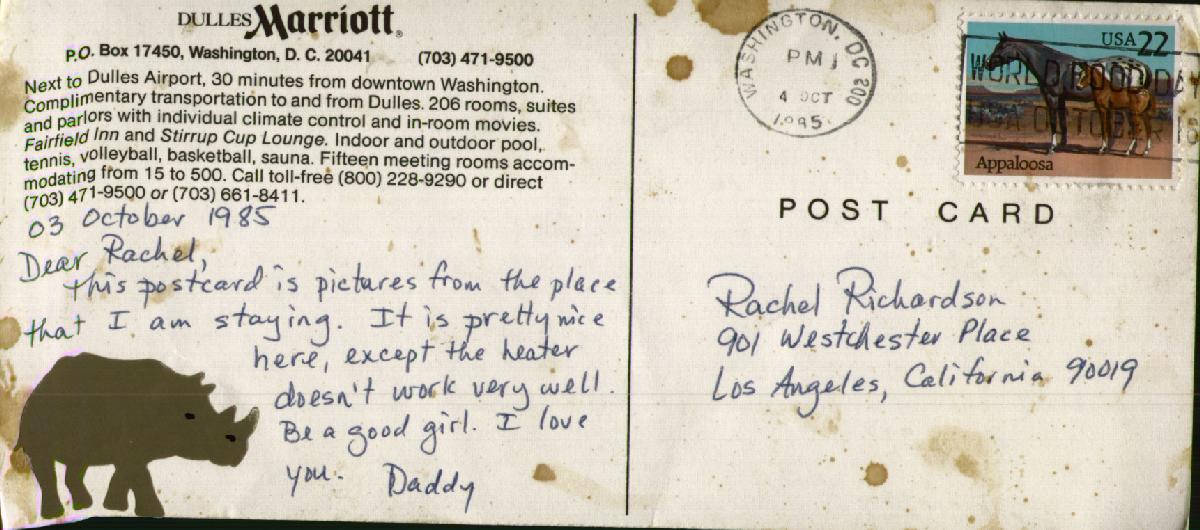 DULLES Marriott®
P.O. Box 17450, Washington, D. C. 20041 (703) 471-9500
Next to Dulles Airport, 30 minutes from downtown Washington.
Complimentary transportation to and from Dulles. 206 rooms, suites
and parlors with individual climate control and in-room movies.
Fairfield Inn and Stirrup Cup Lounge. Indoor and outdoor pool,
tennis, volleyball, basketball, sauna. Fifteen meeting rooms accom-
modating from 15 to 500. Call toll-free (800) 228-9290 or direct
(703) 471-9500 or (703) 661-8411.
03 October 1985
Dear Rachel,
This postcard is pictures from the place
that I am staying. It is pretty nice
here, except the heater
doesn't work very well.
Be a good girl. I love
you. Daddy
WASHINGTON, DC 200
PM
4 OCT
USA 22
WORLD FOOD DAY
OCTOBER 16
Appaloosa
POST CARD
Rachel Richardson
901 Westchester Place
Los Angeles, California 90019